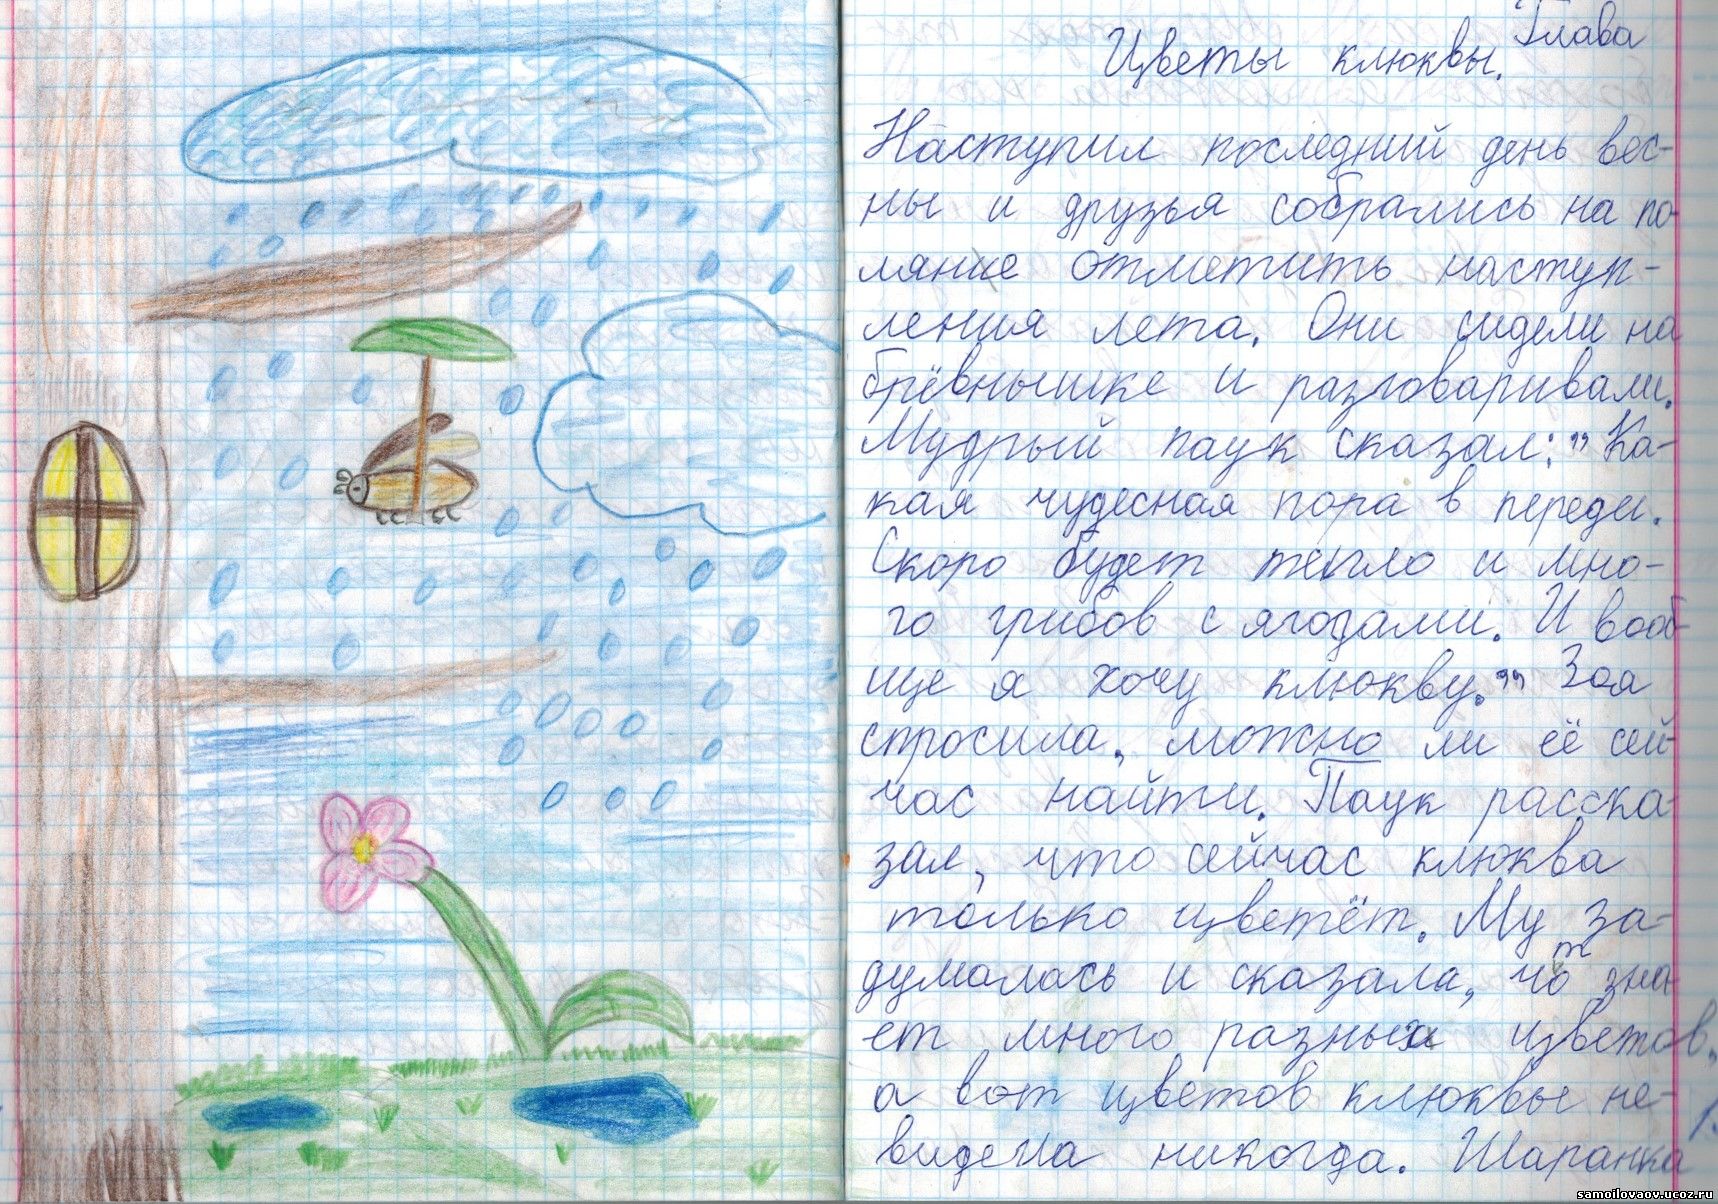 Глава
Цветы клюквы.
Наступил последний день вес-
ны и друзья собрались на по-
ляние отметить наступ-
ления лета. Они сидели на
брёвнышке и разговаривали.
Мудрый паук сказал: "Ка-
кая чудесная пора в переди.
Скоро будет тепло и мно-
го грибов с ягодами. И вооб-
ще я хочу клюкву." Зоя
спросила, можно ли её сей-
час найти. Паук расска-
зал, что сейчас клюква
только цветёт. Му за-
думалась и сказала, что зна-
ет много разных цветов,
а вот цветов клюквы не-
видела никогда. Шаранка
1.
samoilovaov.ucoz.ru